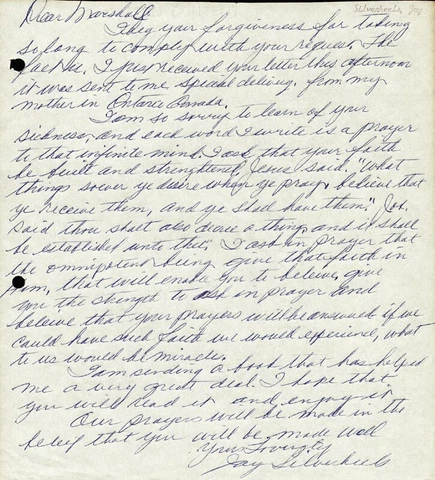 Silverheels, Jay
Dear Marshall
I beg your forgiveness for taking
so long to comply with your request. The
fact is. I just received your letter this afternoon
it was sent to me special delivery from my
mother in Ontario Canada.
I am so sorry to learn of your
sickness, and each word I write is a prayer
to that infinite mind. I ask that your faith
be built and strengthend, Jesus said. "What
things soever ye desire when ye pray, believe that
ye receive them, and ye shall have them." Job
said thou shalt also decree a thing, and it shall
be established unto thee, I ask in prayer that
the omnipotent being give that faith in
Him, that will enable you to believe, give
you the strength to ask in prayer and
believe that your prayers will be answered if we
could have such faith we would experience, what
to us would be miracles.
I am sending a book that has helped
me a very great deal. I hope that
you will read it and enjoy it
Our prayers will be made in the
belief that you will be made well
Yours
Jay Silverheels